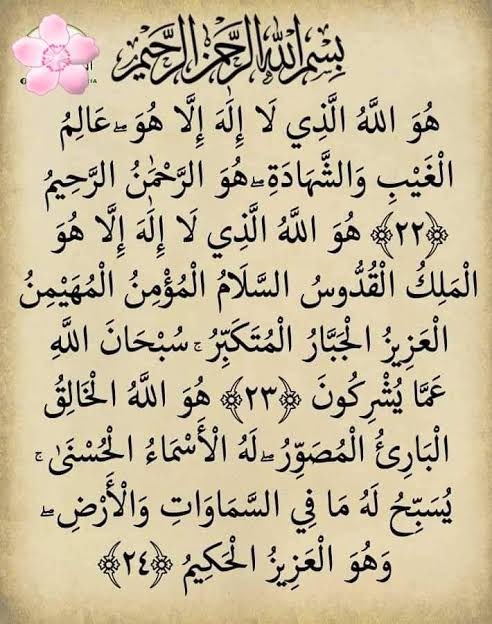 بسم الله الرحمن الرحيم
هُوَ اللَّهُ الَّذِي لَا إِلَٰهَ إِلَّا هُوَ ۖ عَالِمُ
الْغَيْبِ وَالشَّهَادَةِ ۖ هُوَ الرَّحْمَٰنُ الرَّحِيمُ
﴿٢٢﴾ هُوَ اللَّهُ الَّذِي لَا إِلَٰهَ إِلَّا هُوَ
الْمَلِكُ الْقُدُّوسُ السَّلَامُ الْمُؤْمِنُ الْمُهَيْمِنُ
الْعَزِيزُ الْجَبَّارُ الْمُتَكَبِّرُ ۚ سُبْحَانَ اللَّهِ
عَمَّا يُشْرِكُونَ ﴿٢٣﴾ هُوَ اللَّهُ الْخَالِقُ
الْبَارِئُ الْمُصَوِّرُ ۖ لَهُ الْأَسْمَاءُ الْحُسْنَىٰ ۚ
يُسَبِّحُ لَهُ مَا فِي السَّمَاوَاتِ وَالْأَرْضِ ۖ
وَهُوَ الْعَزِيزُ الْحَكِيمُ ﴿٢٤﴾